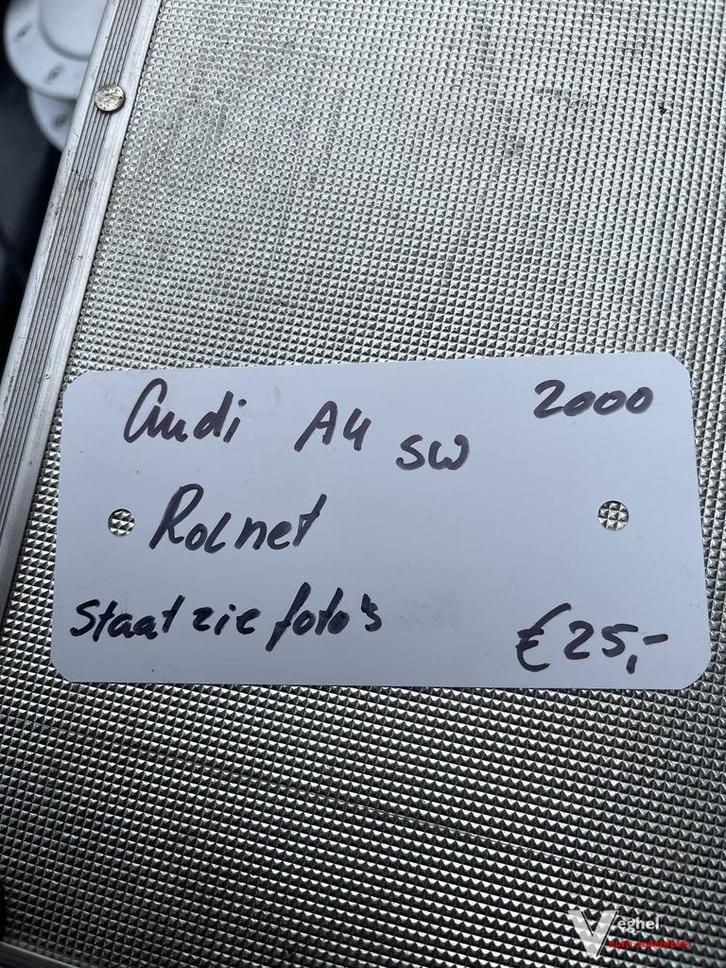 Audi A4 SW 2000
Rolnet
Staat zie foto's €25,-
Veghel